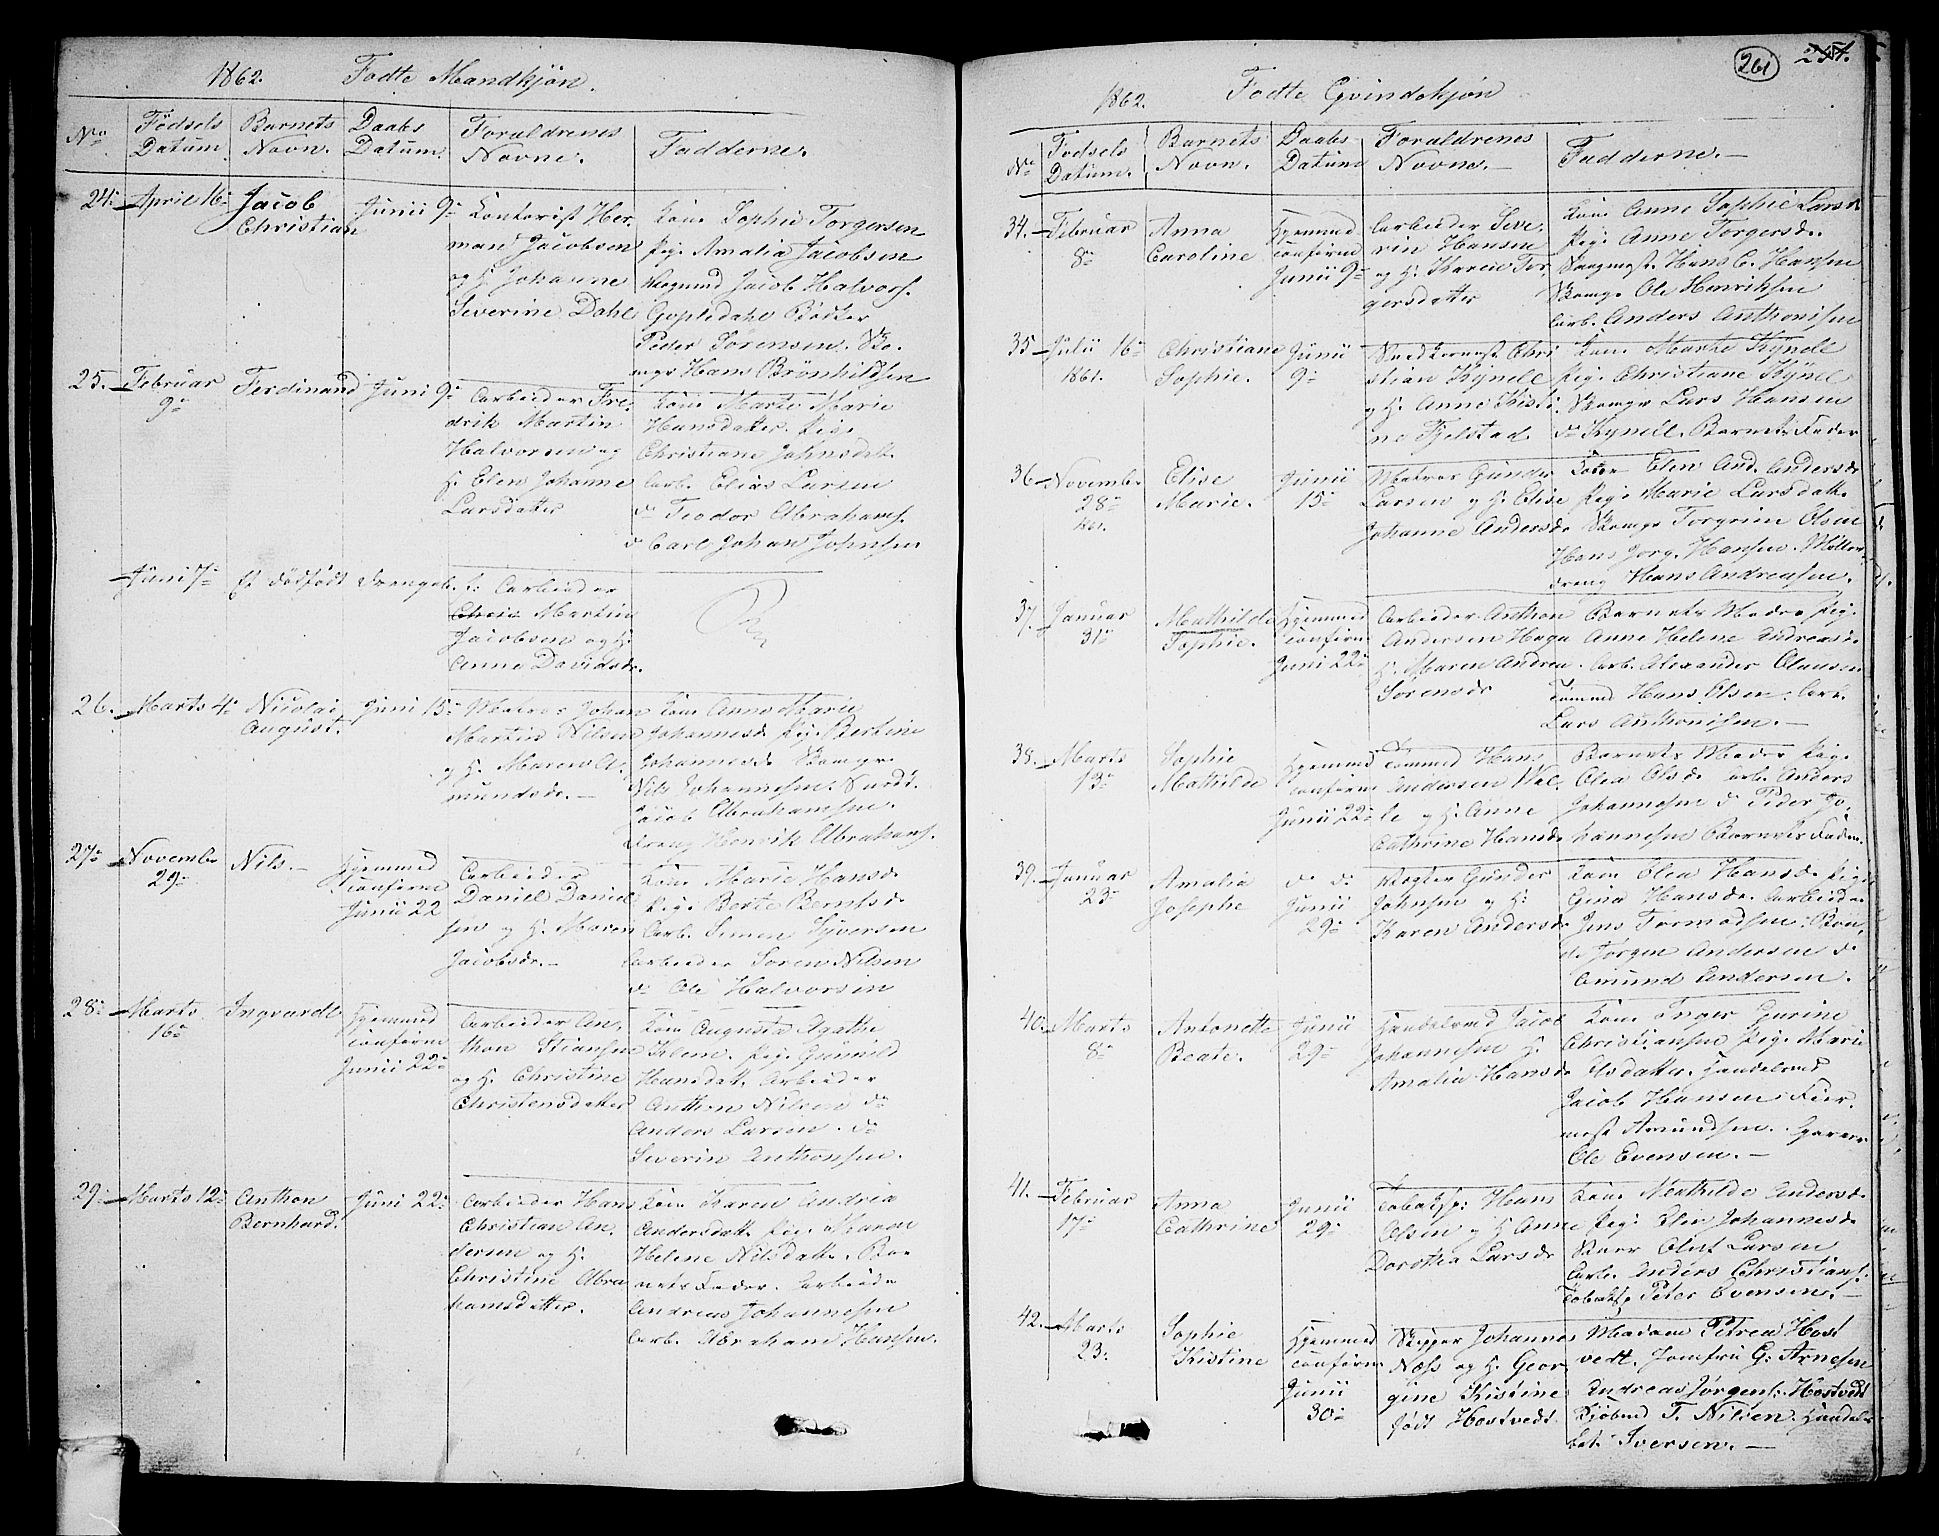 1862. Fødte Mandkjøn.
No Fødsels Datum. Barnets Navn. Daabs Datum. Forældrenes Navne. Fadderne.
24. April 16 Jacob Christian Junii 9
Kontorist Her-
man Jacobsen
og H. Johanne
Severine Dahl
Kone Sophie Torgersen
Pige Amalia Jacobsen
Jacob Halvors.
Gopledahl Bödker
Peder Sörensen.
Hans Brönhildsen
25. Februar 9 Ferdinand Juni 9
Arbeider Fre-
drik Martin
Halvorsen og
H. Elen Johanne
Larsdatter
Kone Marte Marie
Hansdatter. Pige
Christiane Johnsdatt.
Arb. Elias Larsen
do Teodor Abrahams.
do Carl Johan Johnsen
Juni 7 Et dödfödt Drengeb.
t: Arbeider
Martin
Jacobsen og H.
Anne Davidsdr.
26. Marts 4 Nicolai August. Juni 15
Matros Johan
Martin Nilsen
og H. Maren A-
mundsdr. –
Kone Anne Marie
Johannesdr Pige Bertine
Johannesdr
Nils Johannesen.
Jacob Abrahamsen.
Dreng Henrik Abrahams.
27. November 29 Nils. – Hjemmed. confirm. Junii 22
Arbeider
Daniel Daniel
sen og H. Maren
Jacobsdr. –
Kone Marie Hansdr
Pige Berte Berntsdr
Arb. Simen Syversen
Arbeider Soren Nilsen
do Ole Halvorsen
28. Marts 16 Ingvardt Hjemmed confirm Junii 22
Arbeider An-
thon Stiansen
og H. Christine
Christensdatter
Kone Augusta Agathe
Klem. Pige Gunnild
Hansdatt. Arbeider
Anthon Nilsen do
Anders Larsen. do
Severin Anthonsen.
29. Marts 12 Anthon Bernhard. Juni 22
Arbeider Hans
Christian An-
dersen og H.
Christine Abra
hamsdatter.
Kone Karen Andrea
Andersdatt. Pige Maren
Helene Nilsdatt. Bar
nets Fader. Arbeider
Andreas Johannesen
Arb. Abraham Hansen.
261 251.
1862. Fødte Qvindekjøn
No Fødsels Datum. Barnets Navn. Daabs Datum Forældrenes Navne. – Fadderne. –
34. Februar 8 Anna Caroline Hjemmed confirm Junii 9
Arbeider Seve-
rin Hansen
og H. Karen Tor-
gersdatter
Kone Anne Sophie Larsdr
Pige Anne Torgersdr.
Hans C. Hansen
Ole Henriksen
Arb. Anders Anthonisen
35. Julii 16 1861. Christiane Sophie. Junii 9
Chri
stian Kynell
og H. Anne Kisti-
ne Fjelstad
Kone Marte Kynell
Pige Christiane Kynel
Lars Hansen
do Kynell. Barnets Fader
36. November 28 1861. Elise Marie. Junii 15
Matros Gunder
Larsen og H. Elise
Johanne Andersdr
Kone Elen And. Andersdr
Pige Marie Larsdatt.
Torgrim Olsen
Hans Jorg. Hansen. Möller-
dreng Hans Andreasen.
37. Januar 31 Mathilde Sophie. Hjemmed confirm Juni 22
Arbeider Anthon
Andersen Haga
H. Maren Andrea
Sorensdr
Barnets Moder Pige
Anne Helene Andreasdr.
Arb. Alexander Olausen
Tømmd Hans Olsen. Arb.
Lars Anthonisen. –
38. Marts 13 Sophie Mathilde Hjemmed confirm Junii 22
Tømmd Hans
Andersen Wal-
le og H. Anne
Cathrine Hansdr
Barnets Moder Pige
Olea Olsdr Arb. Anders
Johannesen do Peder Jo-
hannesen Barnets Fader.
39. Januar 23 Amalia Josephe do do Junii 29
Gunder
Johnsen og H.
Karen Andersdr
Kone Olea Hansdr. Pige
Gina Hansdr. Arbeider
Jens Tormodsen. Bon-
de Jörgen Andersen do
Amund Andersen.
40. Marts 8 Antonette Beate. Junii 29
Handelsmd Jacob
Johannesen H.
Amalia Hansdr
Kone Inger Gurine
Christiansen Pige Marie
Olsdatter. Handelsmd
Jacob Hansen. Feier-
mest Amundsen.
Ole Evensen. –
41. Februar 17 Anna Cathrine Junii 29
Tobaksp. Hans
Olsen og H. Anne
Dorothea Larsdr
Kone Mathilde Andersdr
Pige Elise Johannesdr
Oluf Larsen
Arb. Anders Christians.
Tobaksp Peter Evensen. –
42. Marts 23. Sophie Kristine Hjemmed confirm Junii 30
Skipper Johannes
Næss og H. Geor
gine Kistine
födt Hostvedt
Madam Petrea Host
vedt. Jomfru G. Arnesen
Andreas Jörgens. Hostvedt
Kjøbmd T. Nilsen. Handels-
bet. Iversen. –